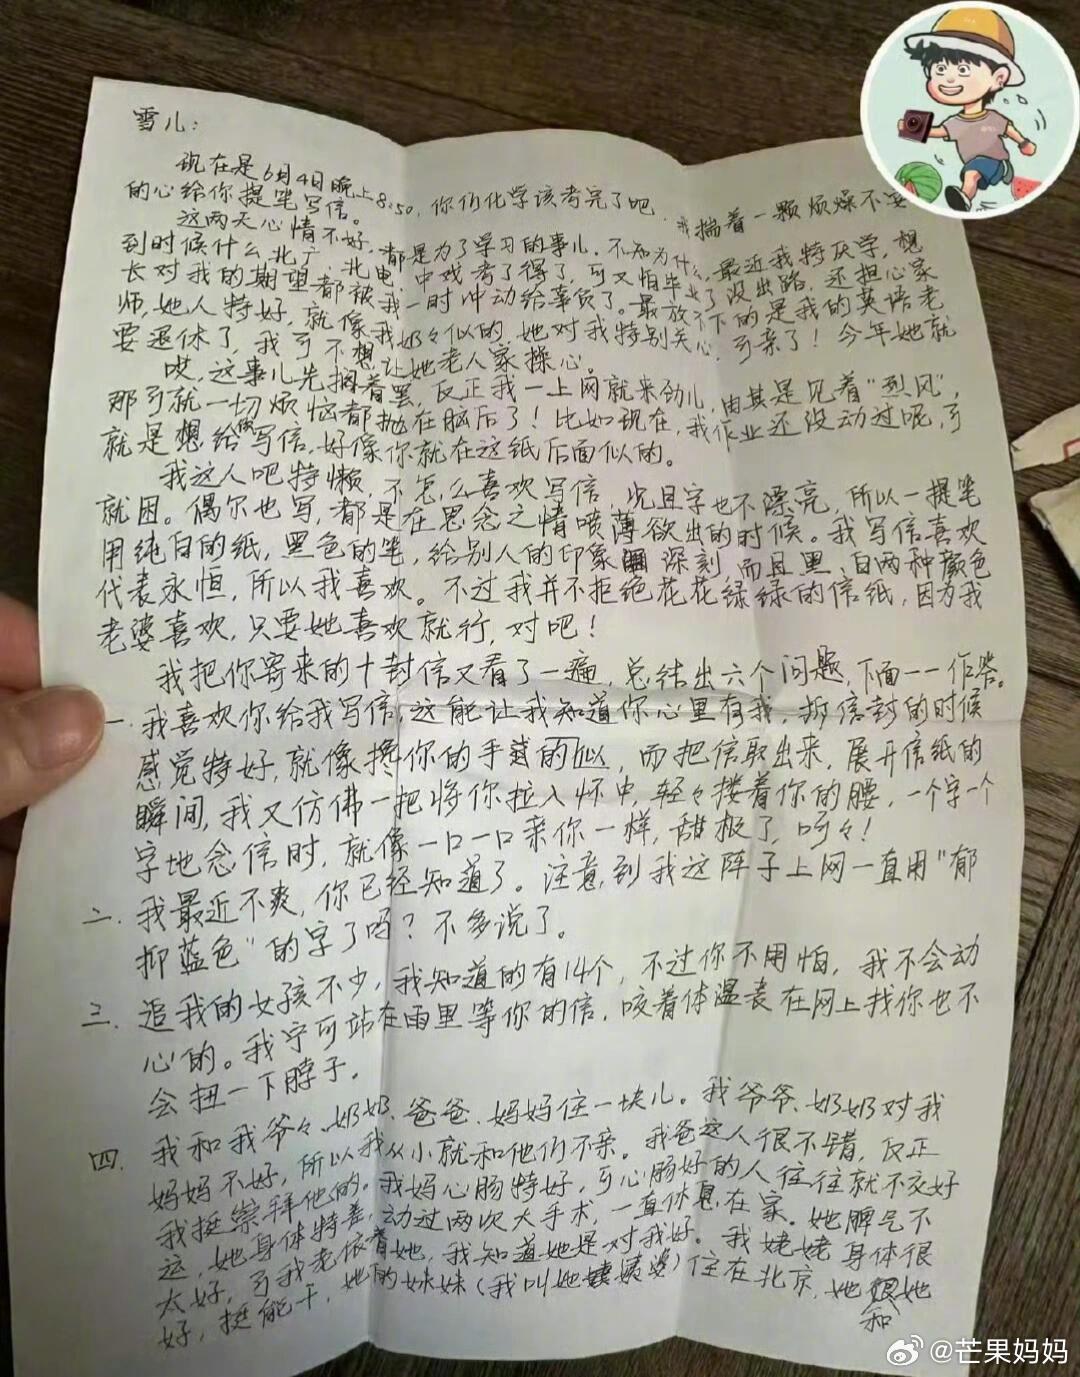 雪儿：
现在是6月4日晚上8:50，你们化学该考完了吧，我揣着一颗烦燥不安
的心给你提笔写信。
这两天心情不好，都是为了学习的事儿，不知为什么，最近我特厌学，想
到时候什么北广、北电、中戏考了得了，可又怕毕业了没出路，还担心家
长对我的期望都被我一时冲动给辜负了。最放不下的是我的英语老
师，她人特好，就像我奶々似的，她对我特别关心，可亲了！今年她就
要退休了，我可不想让她老人家操心。
哎，这事儿先搁着罢，反正我一上网就来劲儿，由其是见着“烈风”，
那可就一切烦恼都抛在脑后了！比如现在，我作业还没动过呢，可
就是想给你写信，好像你就在这纸后面似的。
我这人吧特懒，不怎么喜欢写信，况且字也不漂亮，所以一提笔
就困。偶尔也写，都是在思念之情喷薄欲出的时候。我写信喜欢
用纯白的纸，黑色的笔，给别人的印象深刻，而且黑、白两种颜色
代表永恒，所以我喜欢。不过我并不拒绝花花绿绿的信纸，因为我
老婆喜欢，只要她喜欢就行，对吧！
我把你寄来的十封信又看了一遍，总结出六个问题，下面一一作答。
一．我喜欢你给我写信，这能让我知道你心里有我，拆信封的时候
感觉特好，就像搀你的手似的，而把信取出来，展开信纸的
瞬间，我又仿佛一把将你拉入怀中，轻々搂着你的腰，一个字一个
字地念信时，就像一口一口亲你一样，甜极了，呵々！
二．我最近不爽，你已经知道了。注意到我这阵子上网一直用“郁
抑蓝色”的字了吗？不多说了。
三．追我的女孩不少，我知道的有14个，不过你不用怕，我不会动
心的。我宁可站在雨里等你的信，咬着体温表在网上找你也不
会扭一下脖子。
四．我和我爷々、奶奶、爸爸、妈妈住一块儿。我爷爷、奶奶对我
妈妈不好，所以我从小就和他们不亲。我爸这人很不错，反正
我挺崇拜他的。我妈心肠特好，可心肠好的人往往就不交好
运，她身体特差，动过两次大手术，一直休息在家。她脾气不
太好，可我老依着她，我知道她是对我好。我姥姥身体很
好，挺能干，她的妹妹（我叫她姨婆）住在北京，她和她
@芒果妈妈